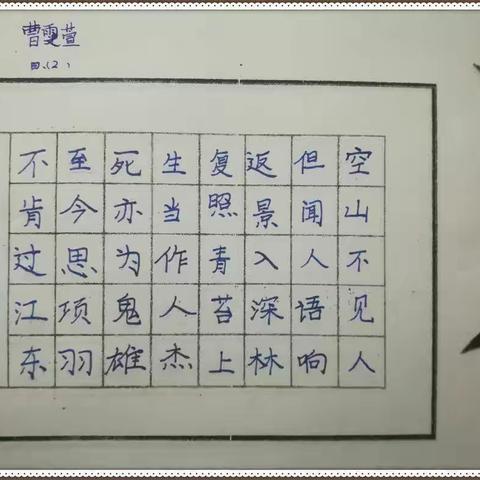 曹雯萱
四（2）
空山不见人
但闻人语响
返景入深林
复照青苔上
生当作人杰
死亦为鬼雄
至今思项羽
不肯过江东